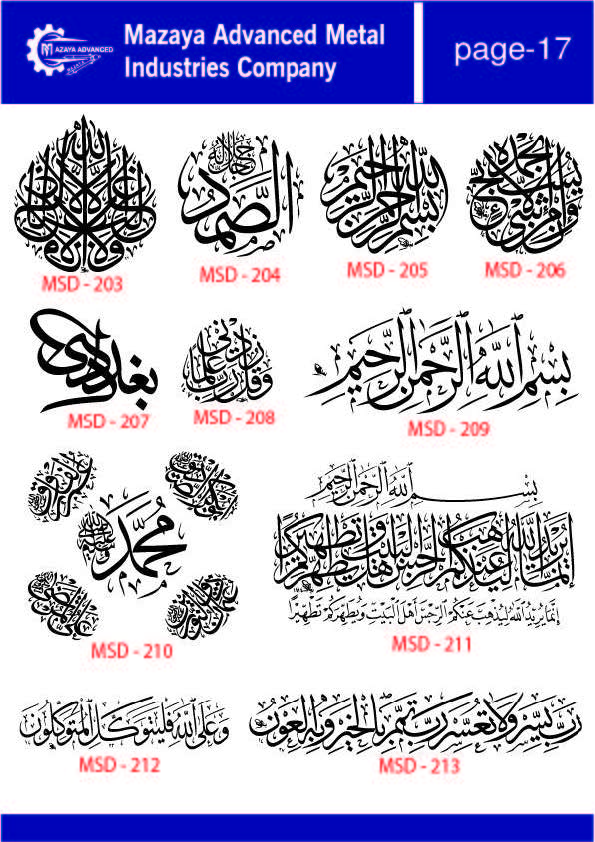 MAZAYA ADVANCED
Mazaya Advanced Metal
Industries Company
page-17
MSD - 203
جل جلاله
الصمد
MSD - 204
بسم الله الرحمن الرحيم
MSD - 205
وإن من شيء إلا يسبح بحمده
MSD - 206
MSD - 207
وقل رب زدني علما
MSD - 208
بِسْمِ اللهِ الرَّحْمٰنِ الرَّحِيْمِ
MSD - 209
مُحَمَّد
MSD - 210
بسم الله الرحمن الرحيم
إنما يريد الله ليذهب عنكم الرجس أهل البيت ويطهركم تطهيرا
إِنَّمَا يُرِيدُ اللهُ لِيُذْهِبَ عَنْكُمُ الرِّجْسَ أَهْلَ الْبَيْتِ وَيُطَهِّرَكُمْ تَطْهِيرًا
MSD - 211
وعلى الله فليتوكل المتوكلون
MSD - 212
رب يسر ولا تعسر رب تمم بالخير وبه العون
MSD - 213